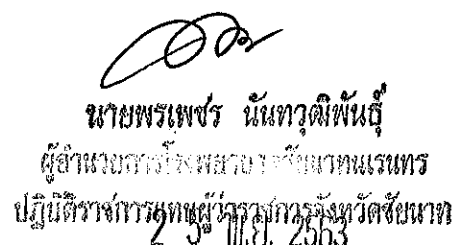 นายพรเพชร นันทวุฒิพันธุ์
ผู้อำนวยการโรงพยาบาลชัยนาทนเรนทร
ปฏิบัติราชการแทนผู้ว่าราชการจังหวัดชัยนาท
2 5 พ.ย. 2563